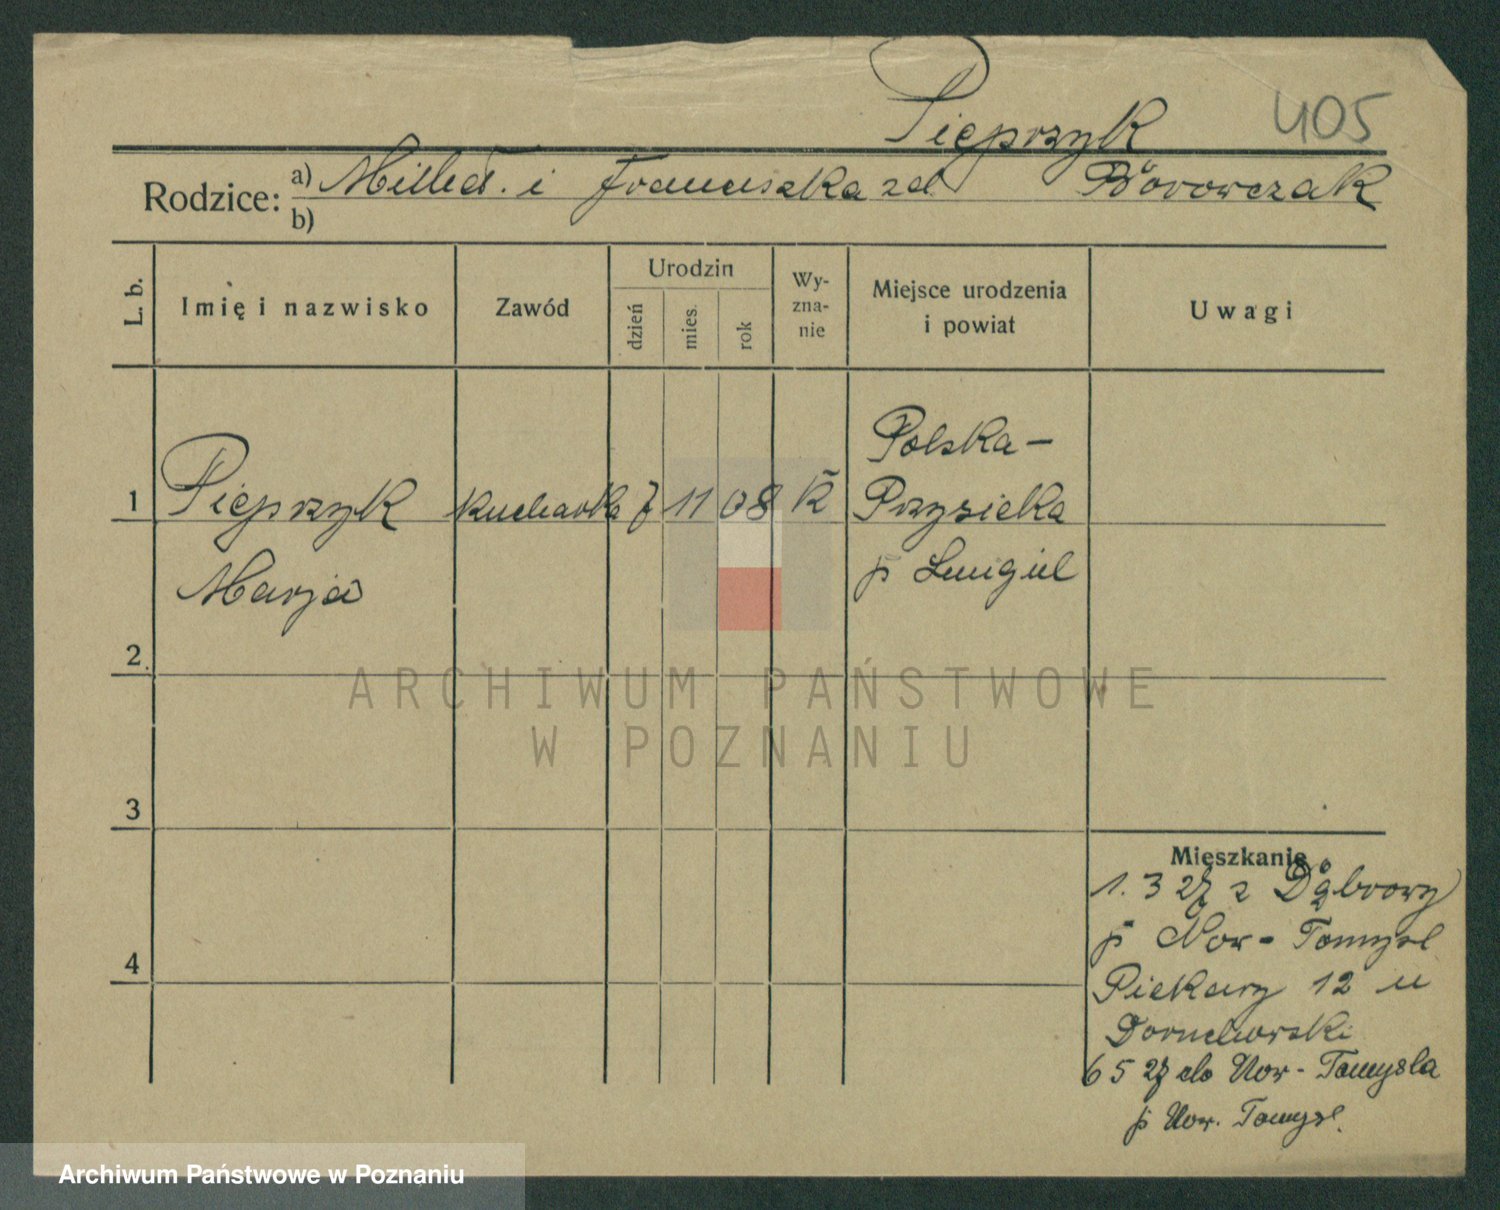 Pieprzyk 405
Rodzice: a) Michał i Franciszka zd. Borowczak
b)
L. b. Imię i nazwisko Zawód Urodzin dzień mies. rok Wy-zna-nie Miejsce urodzenia i powiat Uwagi
Polska -
1 Pieprzyk kucharka 7 11 08 k Przysieka
Marja p Smigiel
2
3
4
Mieszkanie
1. 3 27 z Dąbrowy
p Now- Tomysl
Piekary 12 u
6 5 27 do Now- Tomysla
p Now. Tomysl.
ARCHIWUM PAŃSTWOWE
W POZNANIU
Archiwum Państwowe w Poznaniu